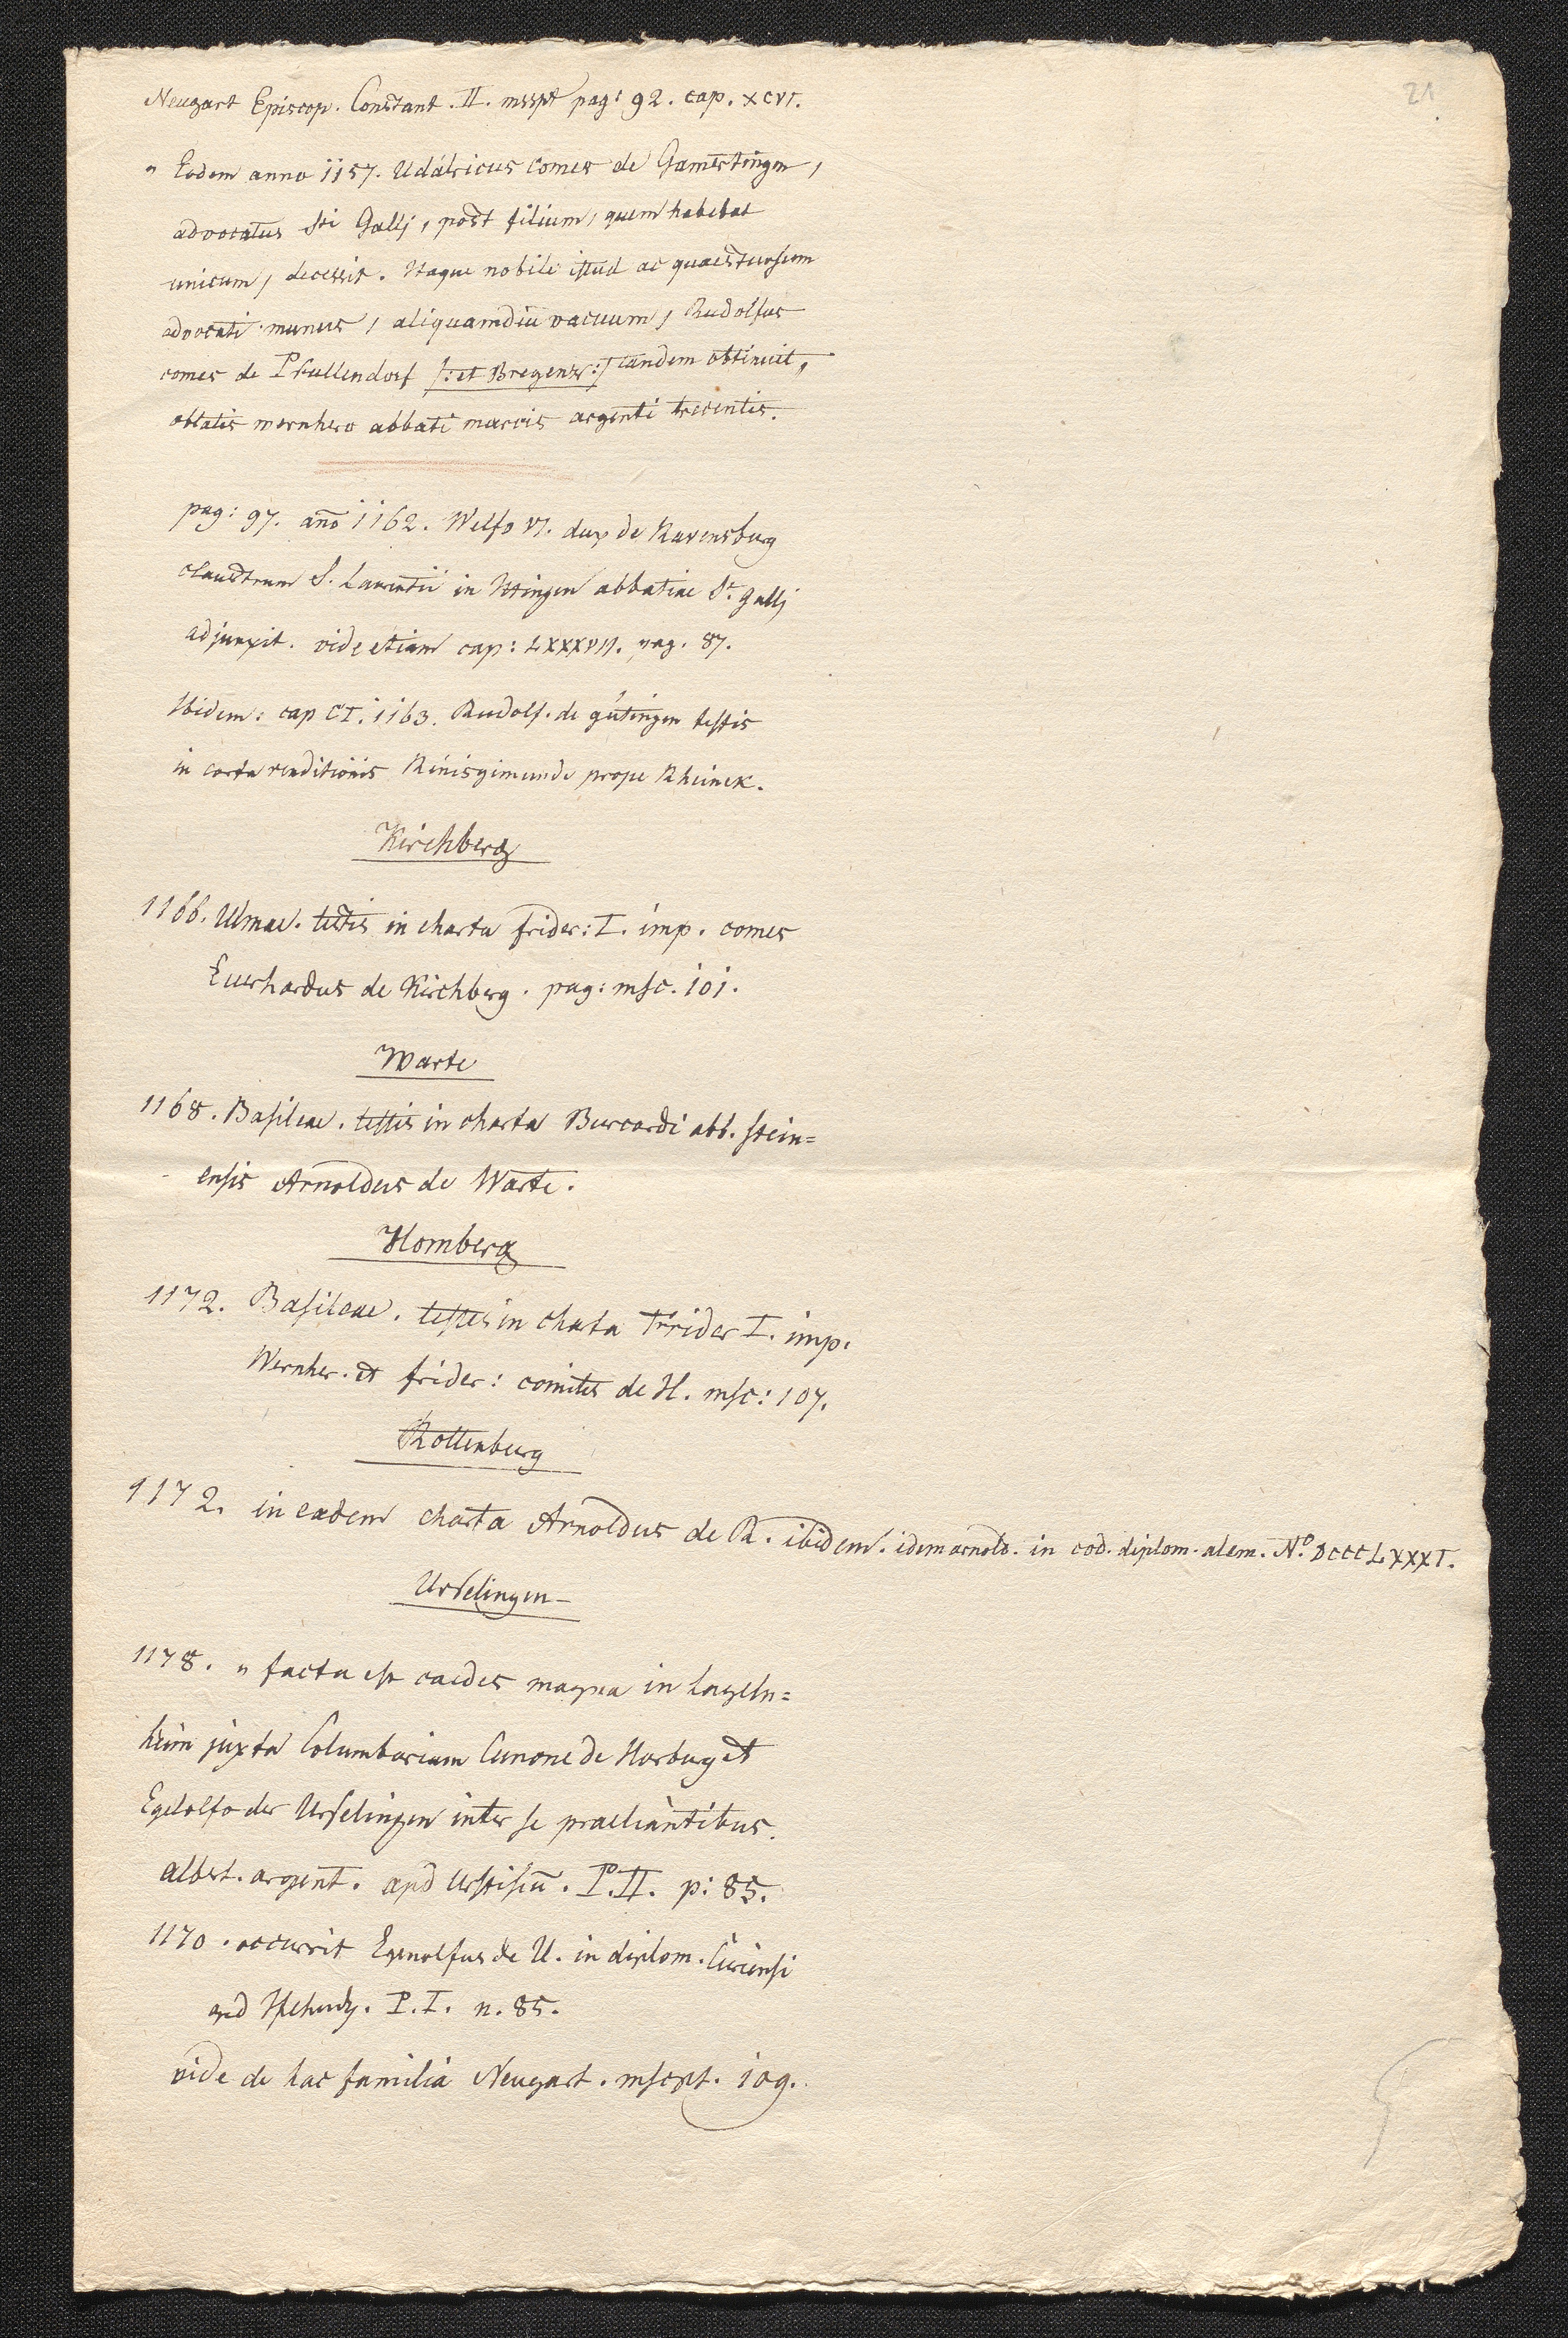 21
Neugart Episcop. Constant. II. msspt pag: 92. cap. XCVI.
" Eodem anno 1157. Udalricus comes de Gamertingen,
advocatus Sti Gallj, post filium, quem habebat
unicum, decessit. Itaque nobile istud ac quaestuosum
advocati munus, aliquamdiu vacuum, Rudolfus
comes de Pfullendorf /: et Bregenz :/ tandem obtinuit,
oblatis wernhero abbati marcis argenti trecentis.
pag: 97. año 1162. Welfo VI. dux de Ravensburg
claustrum S. Laurentii in Ittingen abbatiae St. Gallj
adjunxit. vide etiam cap: LXXXVII. pag. 87.
Ibidem: cap CI. 1163. Rudolf. de gütingen testis
in carta venditionis Rinisgimunde prope Rheinek.
Kirchberg
1166. Ulmae. testis in charta frider: I. imp. comes
Euerhardus de Kirchberg. pag: msc. 101.
Warte
1168. Basileae. testis in charta Burcardi abb. stein=
ensis Arnoldus de Warte.
Homberg
1172. Basileae. testes in charta Frider I. imp.
Wernher. et frider: comites de H. msc: 107.
Rottenburg
1172. in eadem charta Arnoldus de R. ibidem. idem arnold. in cod. diplom. alem. N.º DCCCLXXXI.
Urselingen
1178. " facta est caedes magna in Logeln=
heim juxta Columbariam Cunone de Horburg et
Egelolfo der Urselingen inter se praeliantibus.
albert. argent. apd Urstisiū. P. II. p: 85.
1170. occurrit Egenolfus de U. in diplom. Curiensi
apd Tschudy. P. I. n. 85.
vide de hac familia Neugart. mscpt. 109.